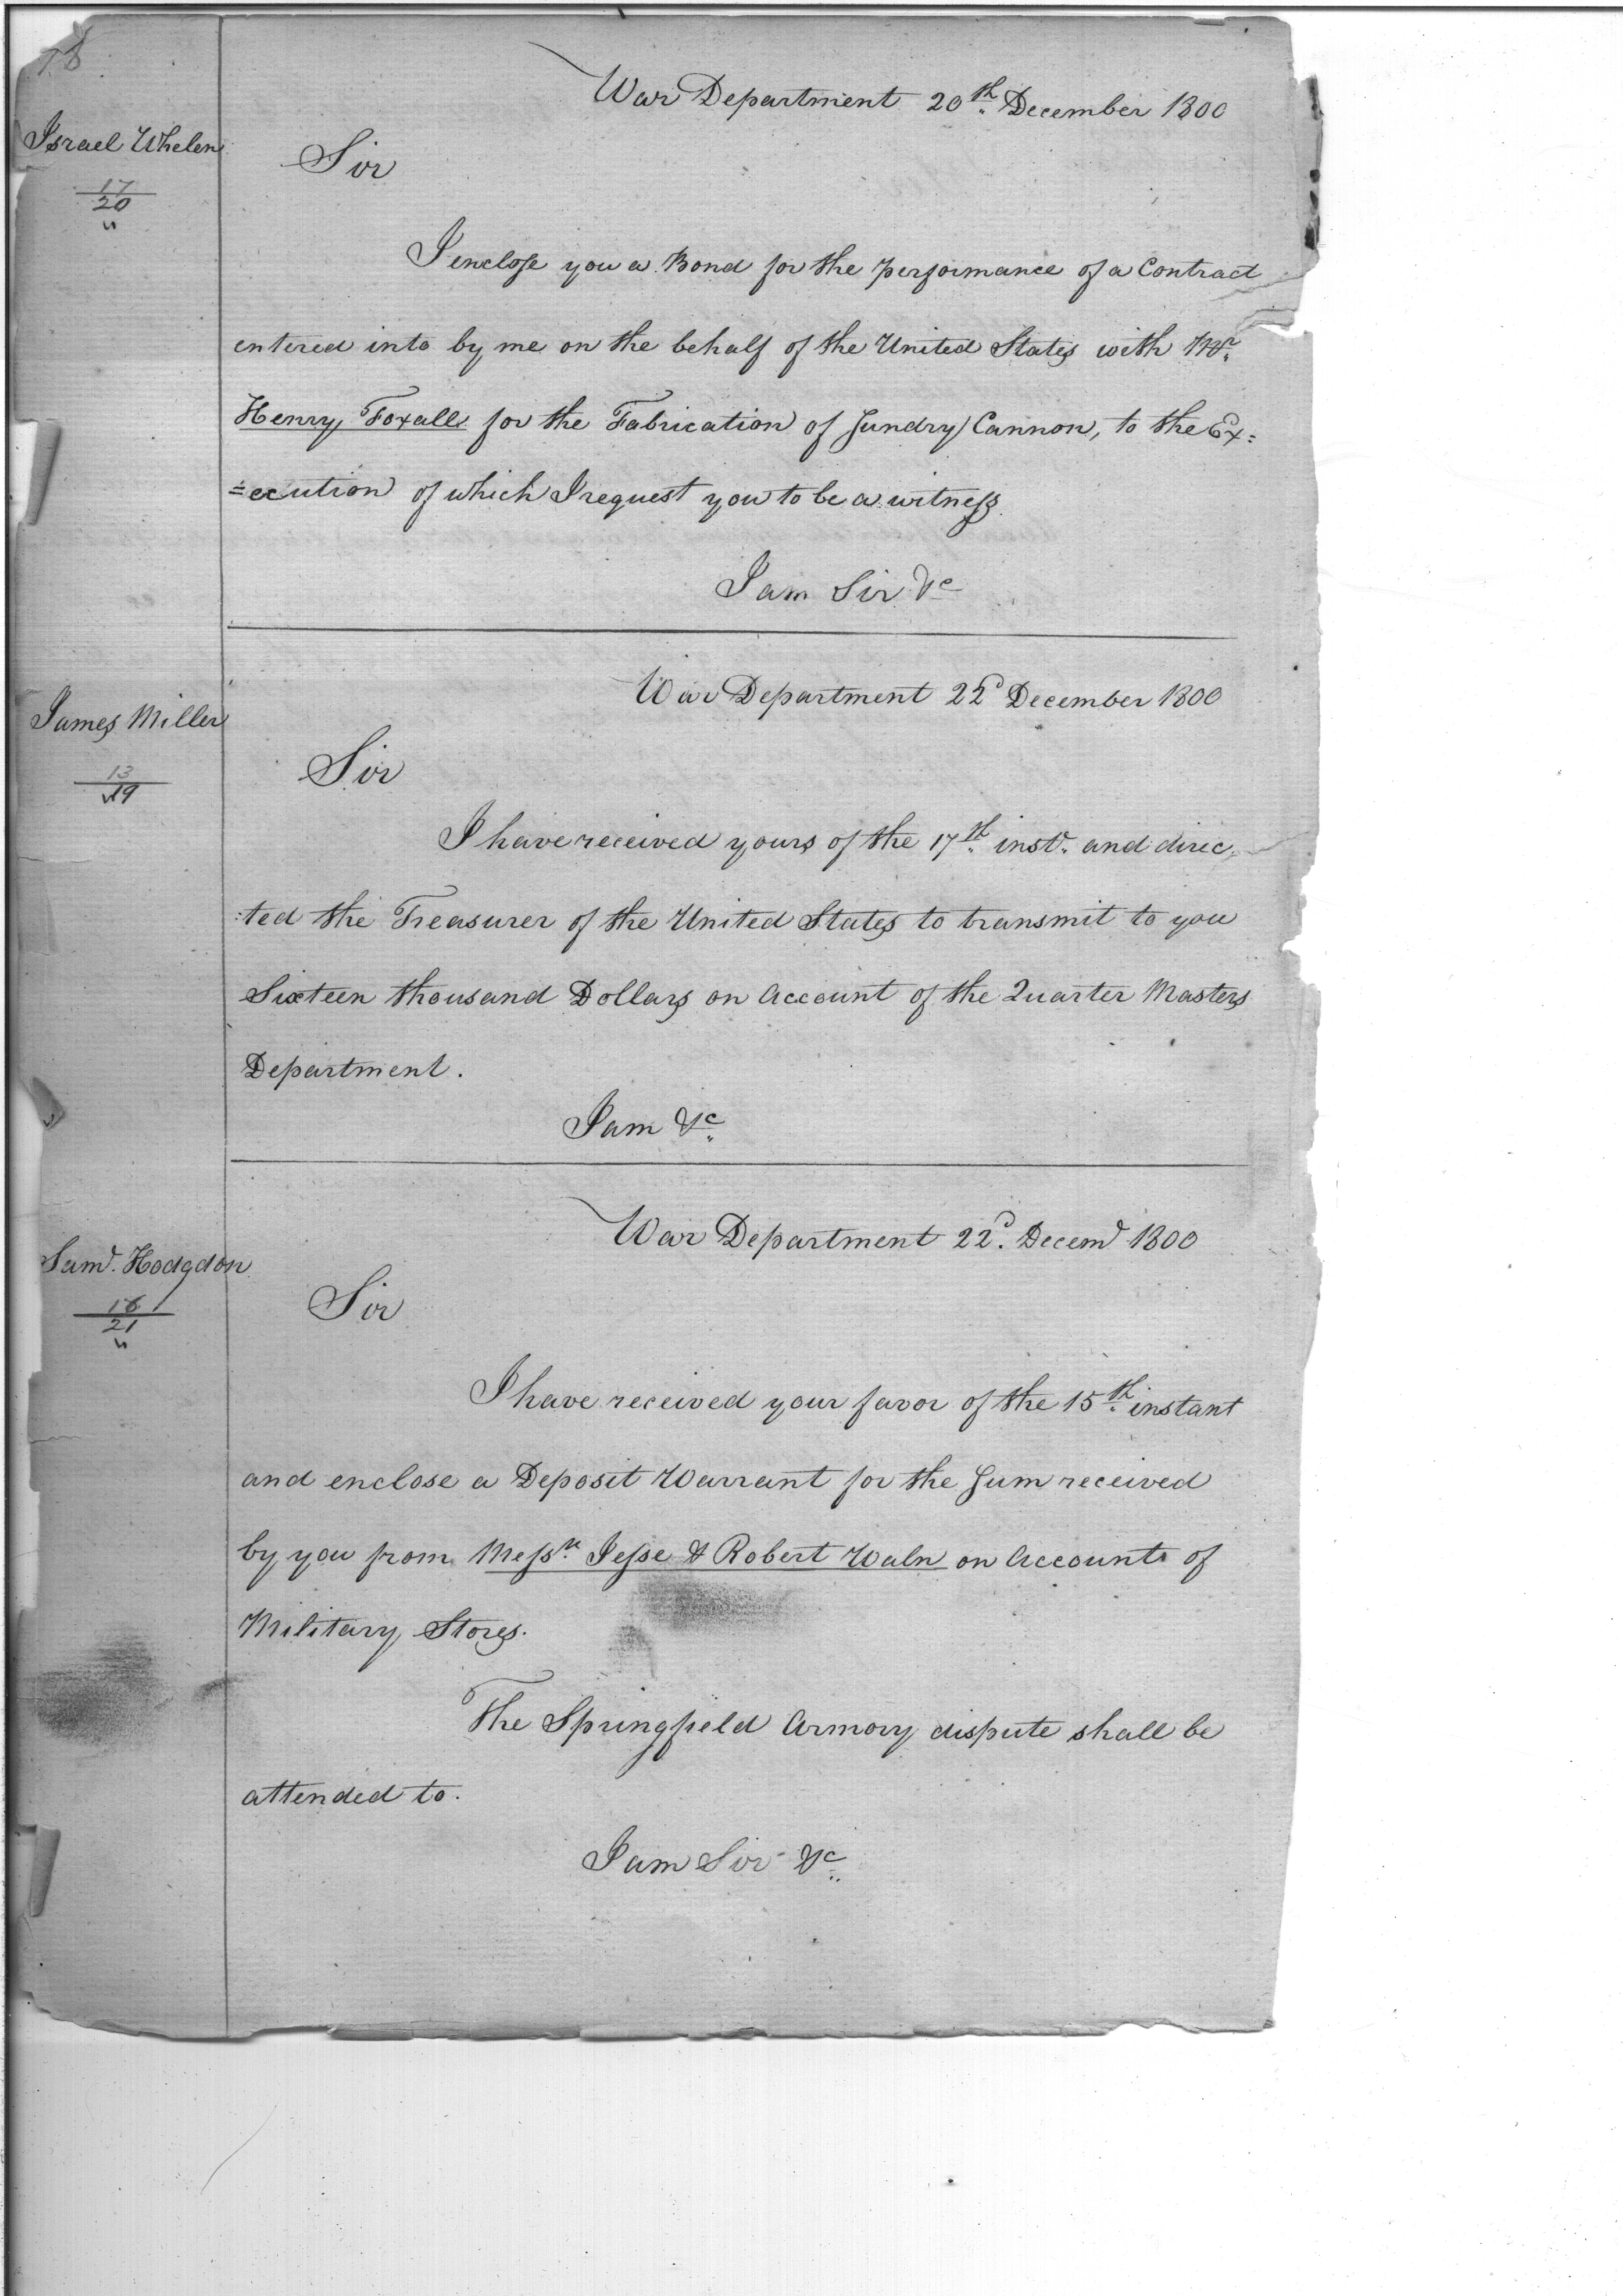 18
War Department 20th December 1800
Israel Whelen
17
20
Sir
I enclose you a Bond for the performance of a Contract
entered into by me on the behalf of the United States with Mr.
Henry Foxall for the Fabrication of Sundry Cannon, to the Ex=
=ecution of which I request you to be a witness
I am Sir &c
War Department 22d December 1800
James Miller
13
19
Sir
I have received yours of the 17th inst. and direc
:ted the Treasurer of the United States to transmit to you
Sixteen thousand Dollars on Account of the Quarter Masters
Department.
I am &c
War Department 22d. Decemr 1800
Saml. Hodgdon
18
21
Sir
I have received your favor of the 15th instant
and enclose a Deposit Warrant for the Sum received
by you from Messrs. Jesse & Robert Waln on Account of
Military Stores.
The Springfield Armory dispute shall be
attended to.
I am Sir &c